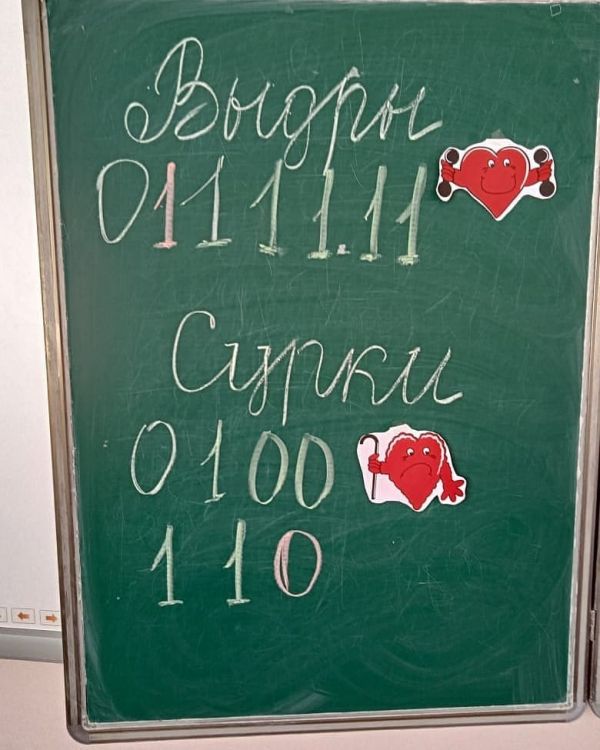 Выдры
0111111
Сурки
0100
110